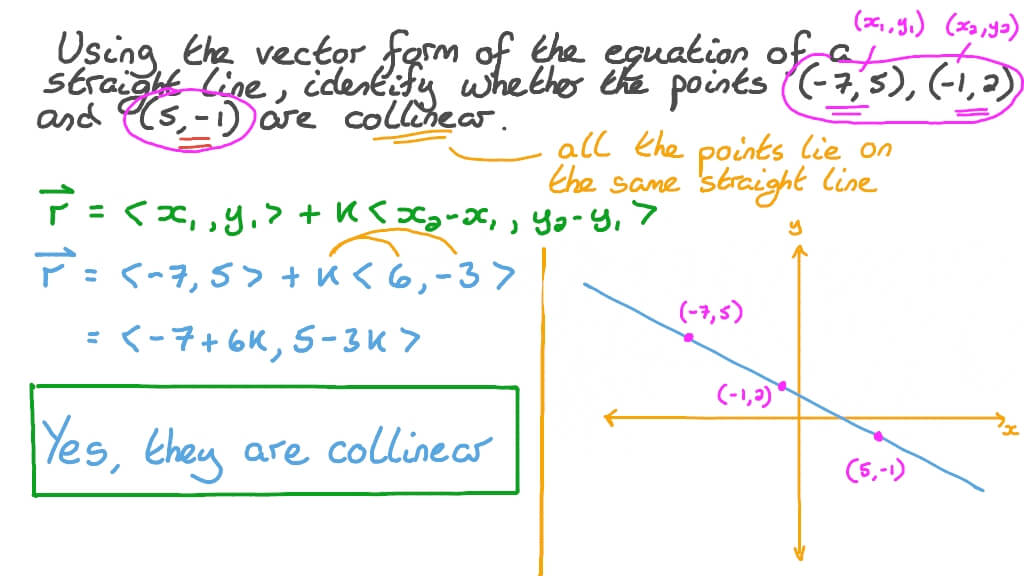 (x₁,y₁) (x₂,y₂)
Using the vector form of the equation of a
straight line, identify whether the points (-7,5), (-1,2)
and (5,-1) are collinear.
all the points lie on
the same straight line
r⃗ = <x₁,y₁> + K<x₂-x₁, y₂-y₁>
r⃗ = <-7,5> + K<6,-3>
= <-7+6K, 5-3K>
Yes, they are collinear
y
(-7,5)
(-1,2)
x
(5,-1)